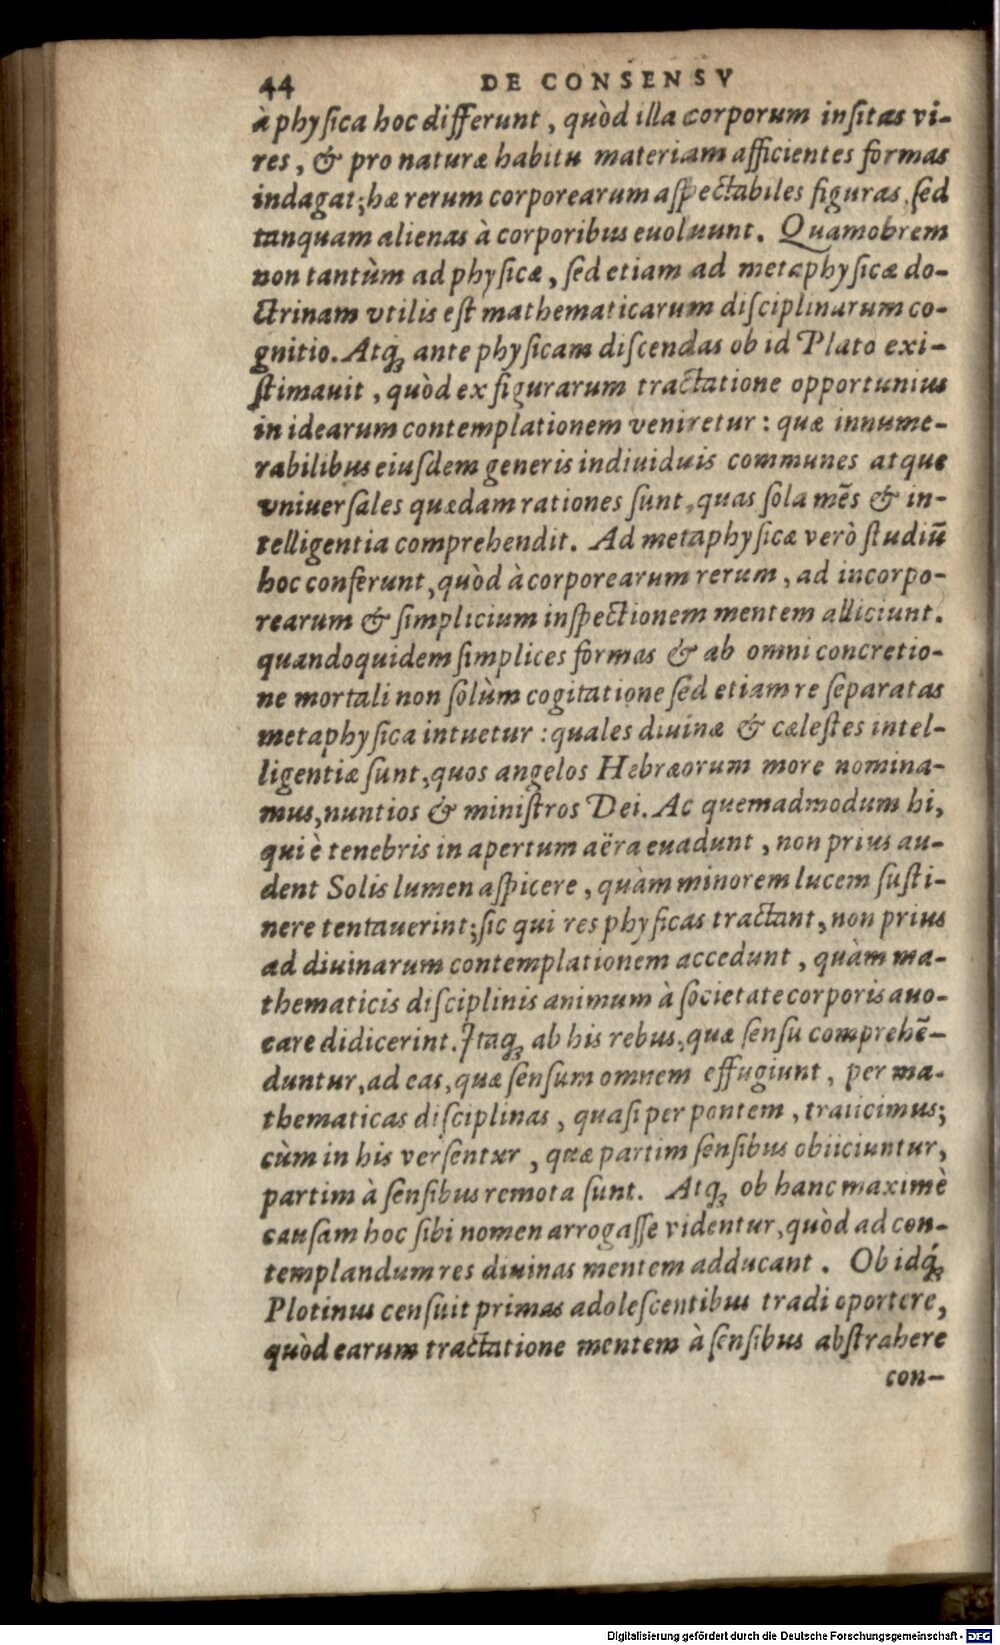 44 DE CONSENSV
à phyſica hoc differunt, quòd illa corporum inſitas vi-
res, & pro naturæ habitu materiam afficientes formas
indagat; hæ rerum corporearum aſpectabiles figuras, ſed
tanquam alienas à corporibus euoluunt. Quamobrem
non tantùm ad phyſicæ, ſed etiam ad metaphyſicæ do-
ctrinam vtilis eſt mathematicarum diſciplinarum co-
gnitio. Atq́; ante phyſicam diſcendas ob id Plato exi-
ſtimauit, quòd ex figurarum tractatione opportunius
in idearum contemplationem veniretur: quæ innume-
rabilibus eiuſdem generis indiuiduis communes atque
vniuerſales quædam rationes ſunt, quas ſola mẽs & in-
telligentia comprehendit. Ad metaphyſicæ verò ſtudiũ
hoc conferunt, quòd à corporearum rerum, ad incorpo-
rearum & ſimplicium inſpectionem mentem alliciunt.
quandoquidem ſimplices formas & ab omni concretio-
ne mortali non ſolùm cogitatione ſed etiam re ſeparatas
metaphyſica intuetur: quales diuinæ & cæleſtes intel-
ligentiæ ſunt, quos angelos Hebræorum more nomina-
mus, nuntios & miniſtros Dei. Ac quemadmodum hi,
qui è tenebris in apertum aëra euadunt, non prius au-
dent Solis lumen aſpicere, quàm minorem lucem ſuſti-
nere tentauerint; ſic qui res phyſicas tractant, non prius
ad diuinarum contemplationem accedunt, quàm ma-
thematicis diſciplinis animum à ſocietate corporis auo-
care didicerint. Itaq; ab his rebus, quæ ſenſu comprehẽ-
duntur, ad eas, quæ ſenſum omnem effugiunt, per ma-
thematicas diſciplinas, quaſi per pontem, traiicimus;
cùm in his verſentur, quæ partim ſenſibus obiiciuntur,
partim à ſenſibus remota ſunt. Atq; ob hanc maximè
cauſam hoc ſibi nomen arrogaſſe videntur, quòd ad con-
templandum res diuinas mentem adducant. Ob idq́;
Plotinus cenſuit primas adoleſcentibus tradi oportere,
quòd earum tractatione mentem à ſenſibus abſtrahere
con-
Digitalisierung gefördert durch die Deutsche Forschungsgemeinschaft - DFG